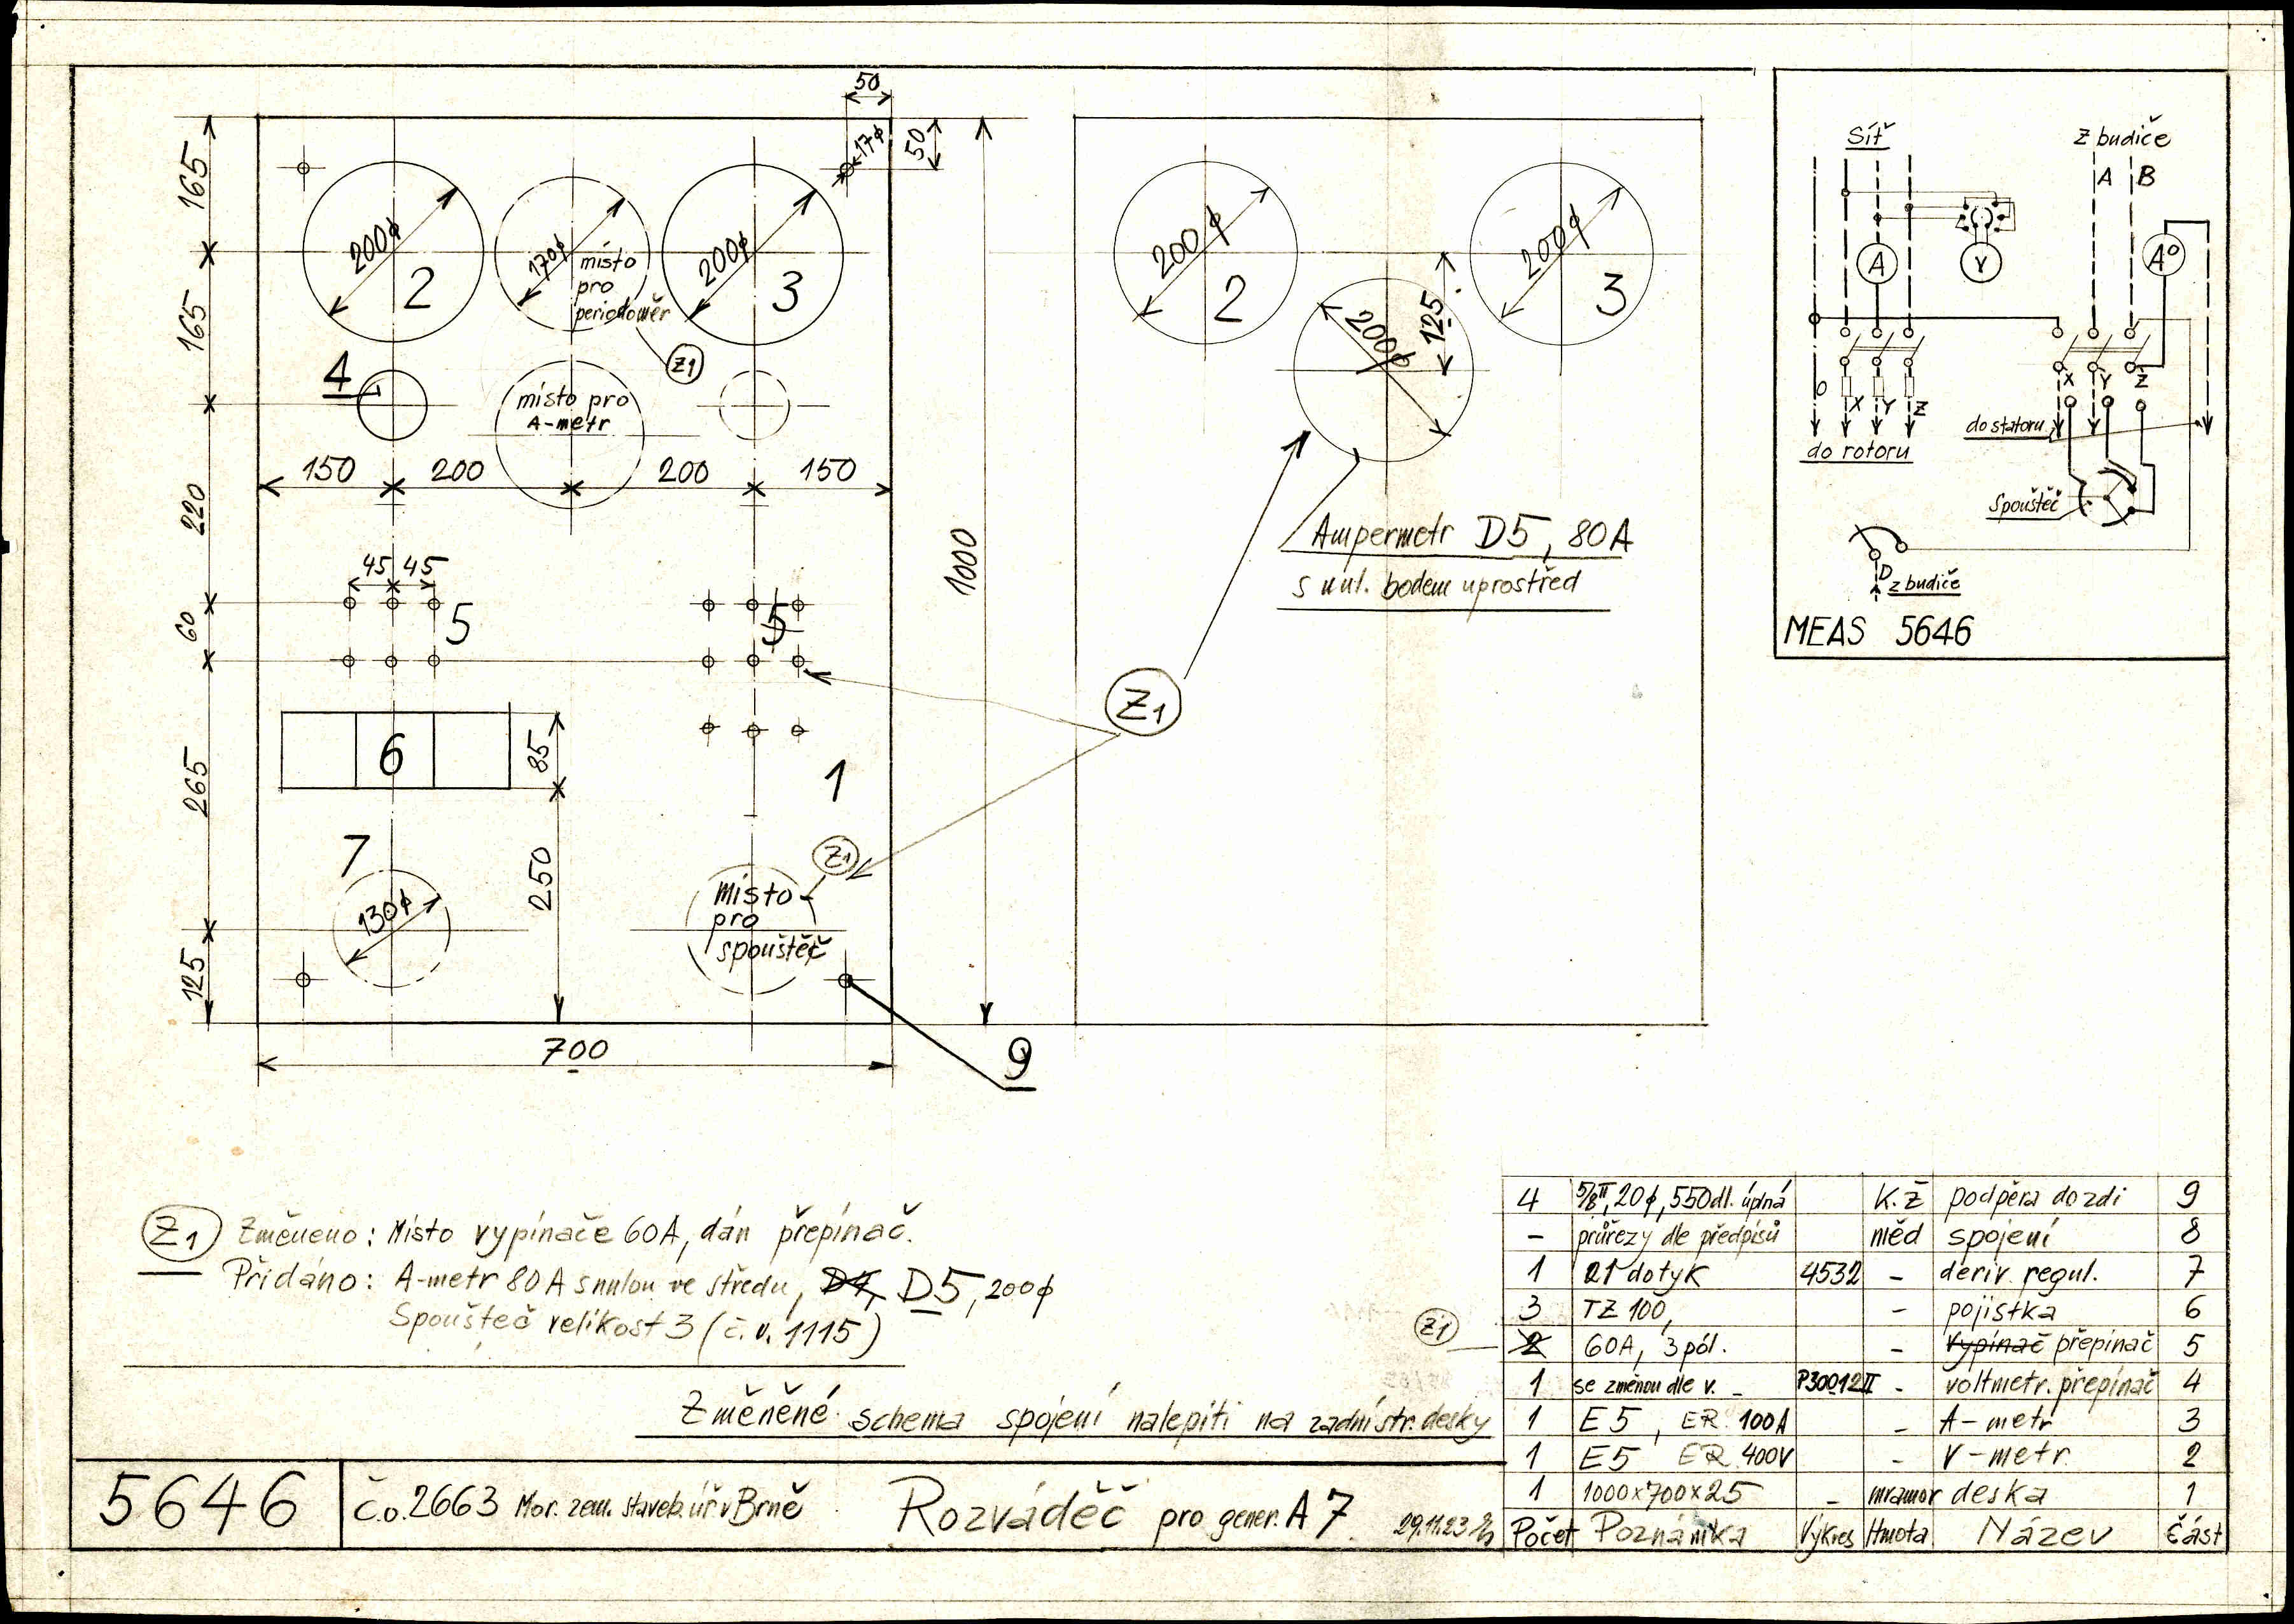 50
17ϕ
50
165
165
220
60
265
125
200ϕ
2
170ϕ
místo
pro
periodoměr
200ϕ
3
Z1
4
místo pro
A-metr
150 200 200 150
45 45
5
5
6
85
1
7
130ϕ
250
Z1
místo
pro
spouštěč
700
9
1000
200ϕ
2
200ϕ
125
200ϕ
3
Ampermetr D5, 80A
s nul. bodem uprostřed
Z1
Síť
Z budiče
A B
A
V
A
O X Y Z
do rotoru
X Y Z
do statoru
Spouštěč
D
z budiče
MEAS 5646
Z1 Změneno: Místo vypínače 60A, dán přepínač.
Přidáno: A-metr 80A s nulou ve středu, D7, D5, 200ϕ
Spouštěč velikost 3 (č.v. 1115)
Změněné schema spojení nalepiti na zadní str. desky
Z1
4 5/8", 20ϕ, 550 dl. úplná K.Ž podpěra do zdi 9
- průřezy dle předpisů měď spojení 8
1 21 dotyk 4532 - deriv. regul. 7
3 TZ 100, - pojistka 6
2 60A, 3 pól. - vypínač přepínač 5
1 se změnou dle v. - P30012II - voltmetr. přepínač 4
1 E5, ER 100A - A-metr 3
1 E5 ER 400V - V-metr 2
1 1000x700x25 - mramor deska 1
Počet Poznámka Výkres Hmota Název část
5646 Č.o. 2663 Mor. zem. staveb. úř v Brně Rozváděč pro gener. A7 29.11.23